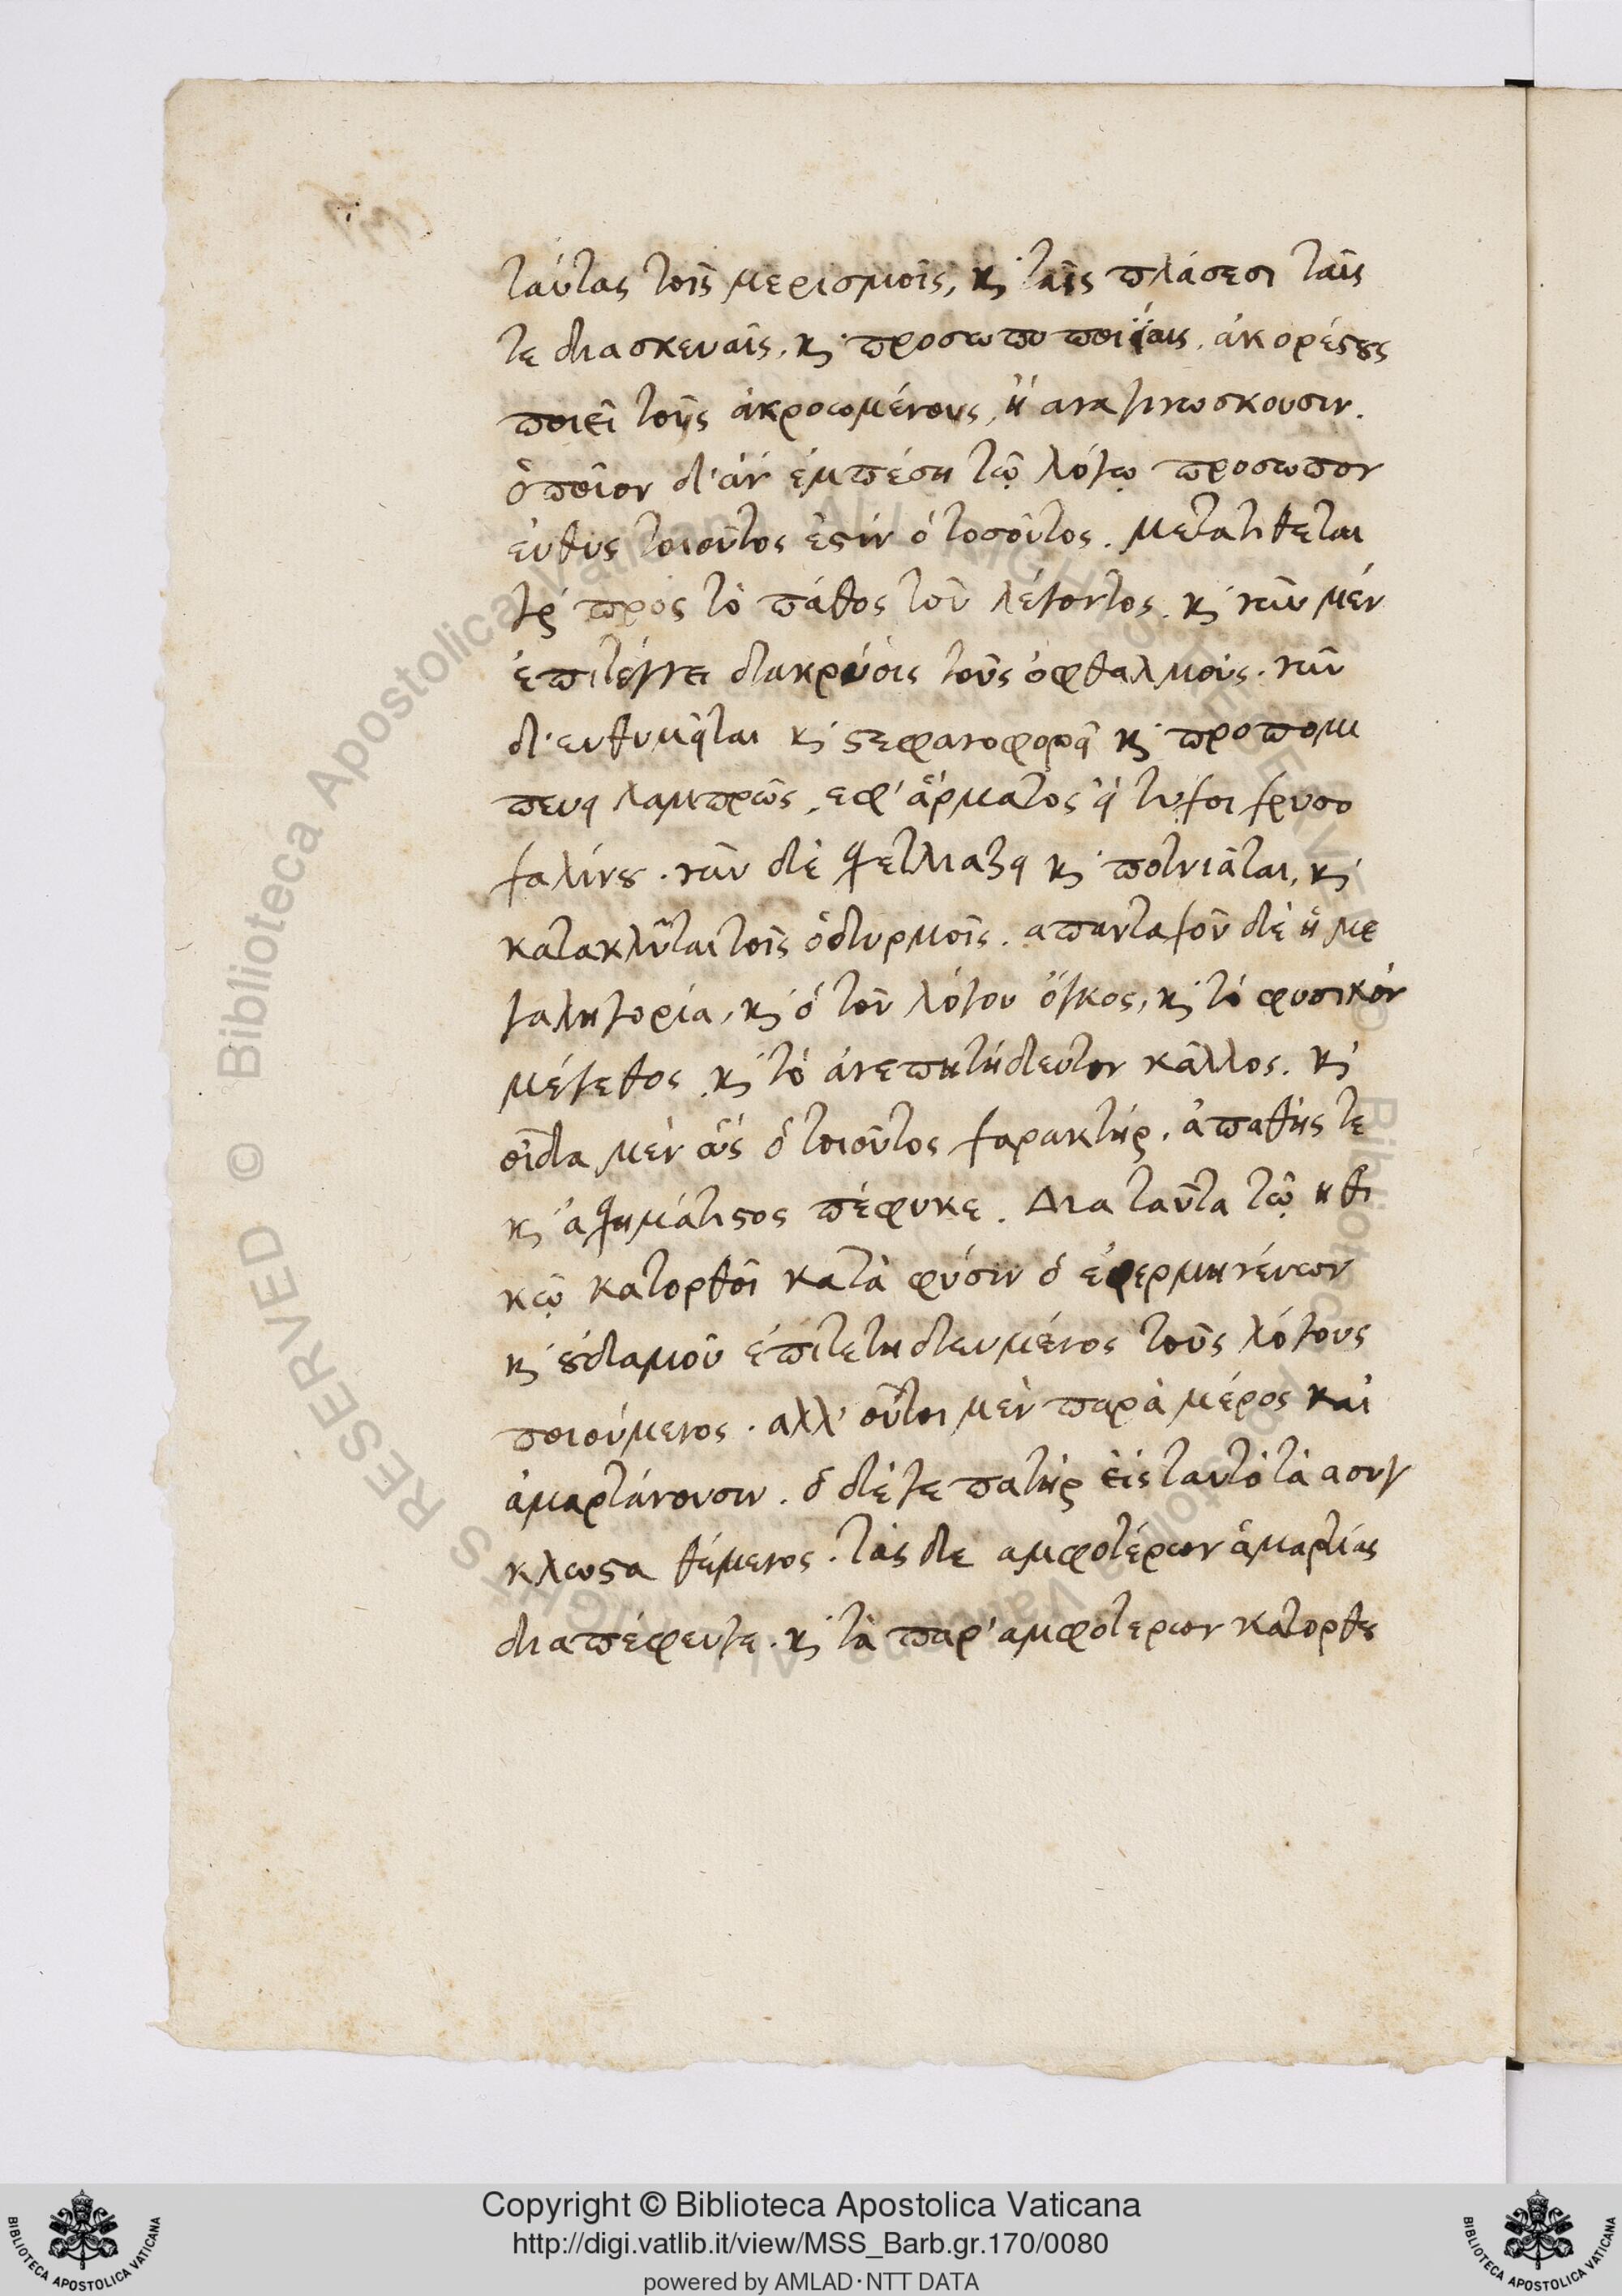 ταύτας τοῖς μερισμοῖς, κ ταῖς πλάσεσι ταῖς
τε διασκευαῖς. κ προσωποποιΐαις. ἀκορέστους
ποιεῖ τοῦς ἀκροωμένους, ἢ αναγινωσκουσιν.
ὁποῖον δ' ἀν ἐμπέσῃ τῷ λόγῳ προσωπον
ευθυς τοιοῦτος ἐστιν ὁ τοσοῦτος. μετατιθεται
γὰρ προς τὸ πάθος τοῦ λέγοντος. κ νῦν μέν
ἐπιτέγγει δακρύσις τοῦς ὀφθαλμούς. νῦν
δ' ευθυμεῖται κ στεφανοφορεῖ κ προπομ
πευει λαμπρῶς, εφ' ἅρματος εἰ τύχοι χρυσο
χαλίνου. νῦν δὲ σχετλιαζει κ ποτνιᾶται, κ
κατακλᾶται τοῖς ὀδυρμοῖς. απανταχοῦ δὲ ἡ με
γαληγορία, κ ὁ τοῦ λόγου ὄγκος, κ τὸ φυσικόν
μέγεθος. κ τὸ ἀνεπητήδευτον κᾶλλος. κ
οἶδα μὲν ὡς ὁ τοιοῦτος χαρακτήρ. ἀπαθής τε
κ ἀσχημάτιστος πέφυκε. Δια ταῦτα τῷ ηθι
κῷ κατορθοῖ κατὰ φύσιν ὁ ἐφερμηνεύων
κ οὐδαμοῦ ἐπιτετηδευμένος τοῦς λόγους
ποιούμενος. αλλ' οὗτοι μὲν παρὰ μέρος καὶ
ἁμαρτάνουσιν. ὁ δέ γε πατὴρ εἰς ταυτὸ τὰ ασυγ
κλωστα θέμενος. τὰς δε αμφοτέρων ἁμαρτίας
διαπέφευγε. κ τὰ παρ' αμφοτερων κατορθου
Copyright © Biblioteca Apostolica Vaticana
http://digi.vatlib.it/view/MSS_Barb.gr.170/0080
powered by AMLAD·NTT DATA
BIBLIOTECA APOSTOLICA VATICANA
BIBLIOTECA APOSTOLICA VATICANA